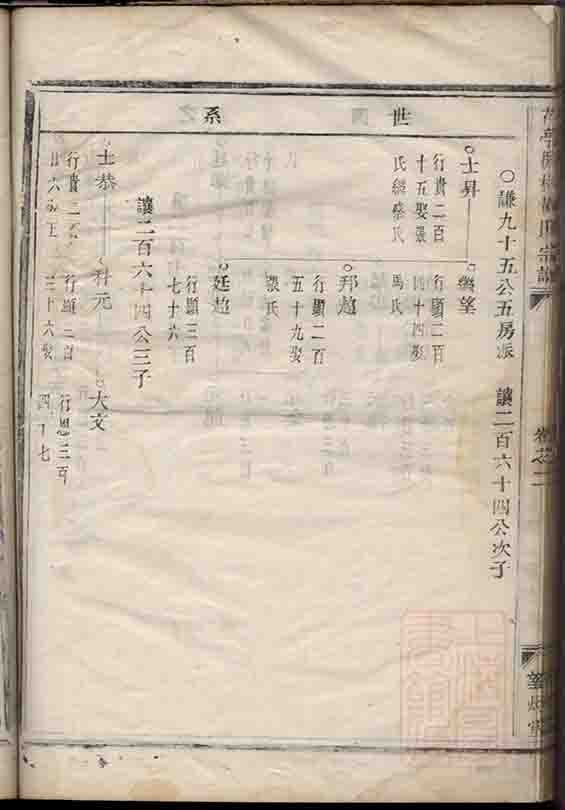 世系
〇謙九十五公五房派 讓二百六十四公次子
士昇
行貴二百
十五娶張
氏繼蔡氏
行顯二百
四十四娶
馬氏
邦超
行顯二百
五十九娶
張氏
廷超
行顯三百
七十六
讓二百六十四公三子
士恭
科元
行顯二百
三十六娶
大文
行思三百
四十七
宗譜
卷之二